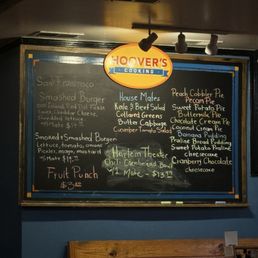 HOOVER'S
COOKING
San Francisco
Smashed Burger
Cheddar Cheese,
Shredded lettuce
Smoked + Smashed Burger
Lettuce, tomato, onions
Pickles, mayo, mustard
Fruit Punch
House Mates
Kale & Beet Salad
Collard Greens
Butter Cabbage
Cucumber Tomato Salad
Harlem Theater
Peach Cobbler Pie
Pecan Pie
Sweet Potato Pie
Buttermilk Pie
Chocolate Cream Pie
Coconut Cream Pie
Banana Pudding
Praline Bread Pudding
Sweet Potato Praline
cheesecake
Cranberry Chocolate
cheesecake